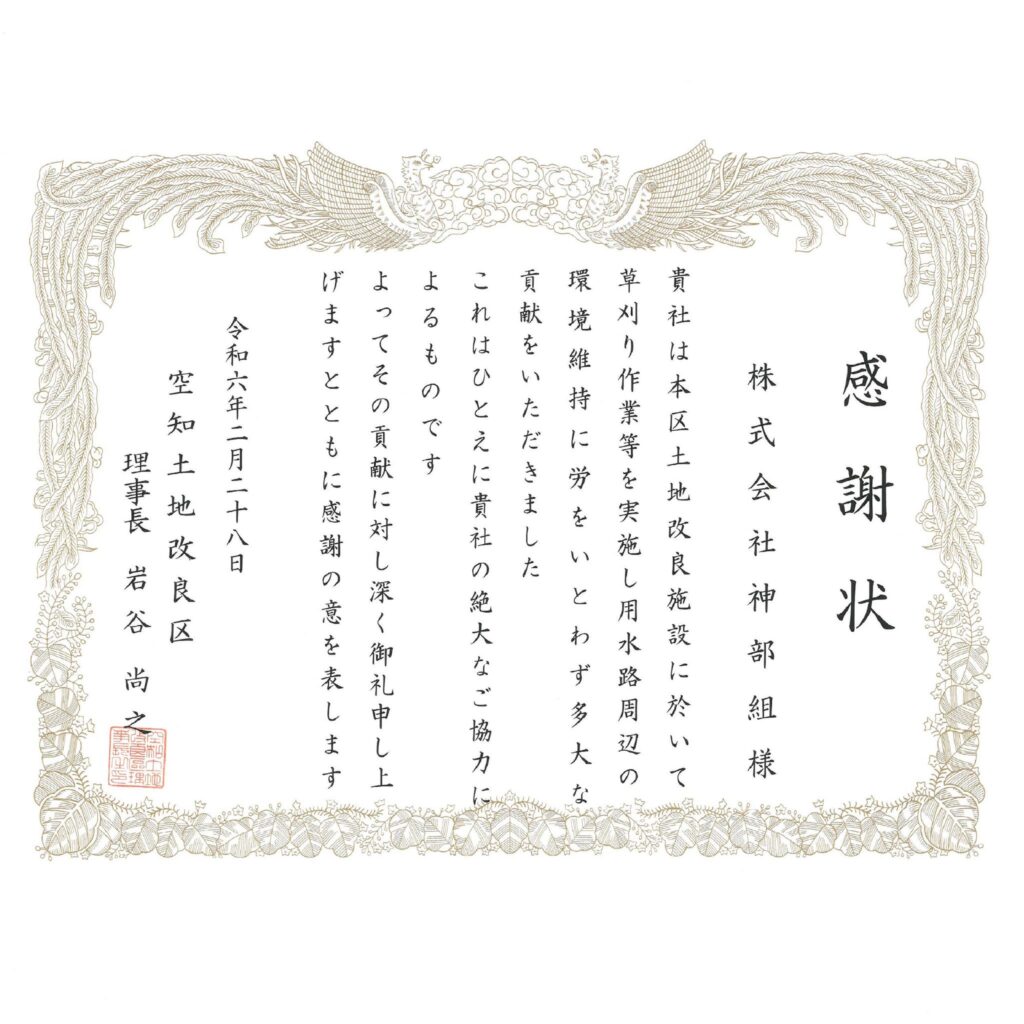 感謝状
株式会社神部組様
貴社は本区土地改良施設に於いて
草刈り作業等を実施し用水路周辺の
環境維持に労をいとわず多大な
貢献をいただきました
これはひとえに貴社の絶大なご協力に
よるものです
よってその貢献に対し深く御礼申し上
げますとともに感謝の意を表します
令和六年二月二十八日
空知土地改良区
理事長 岩谷尚之